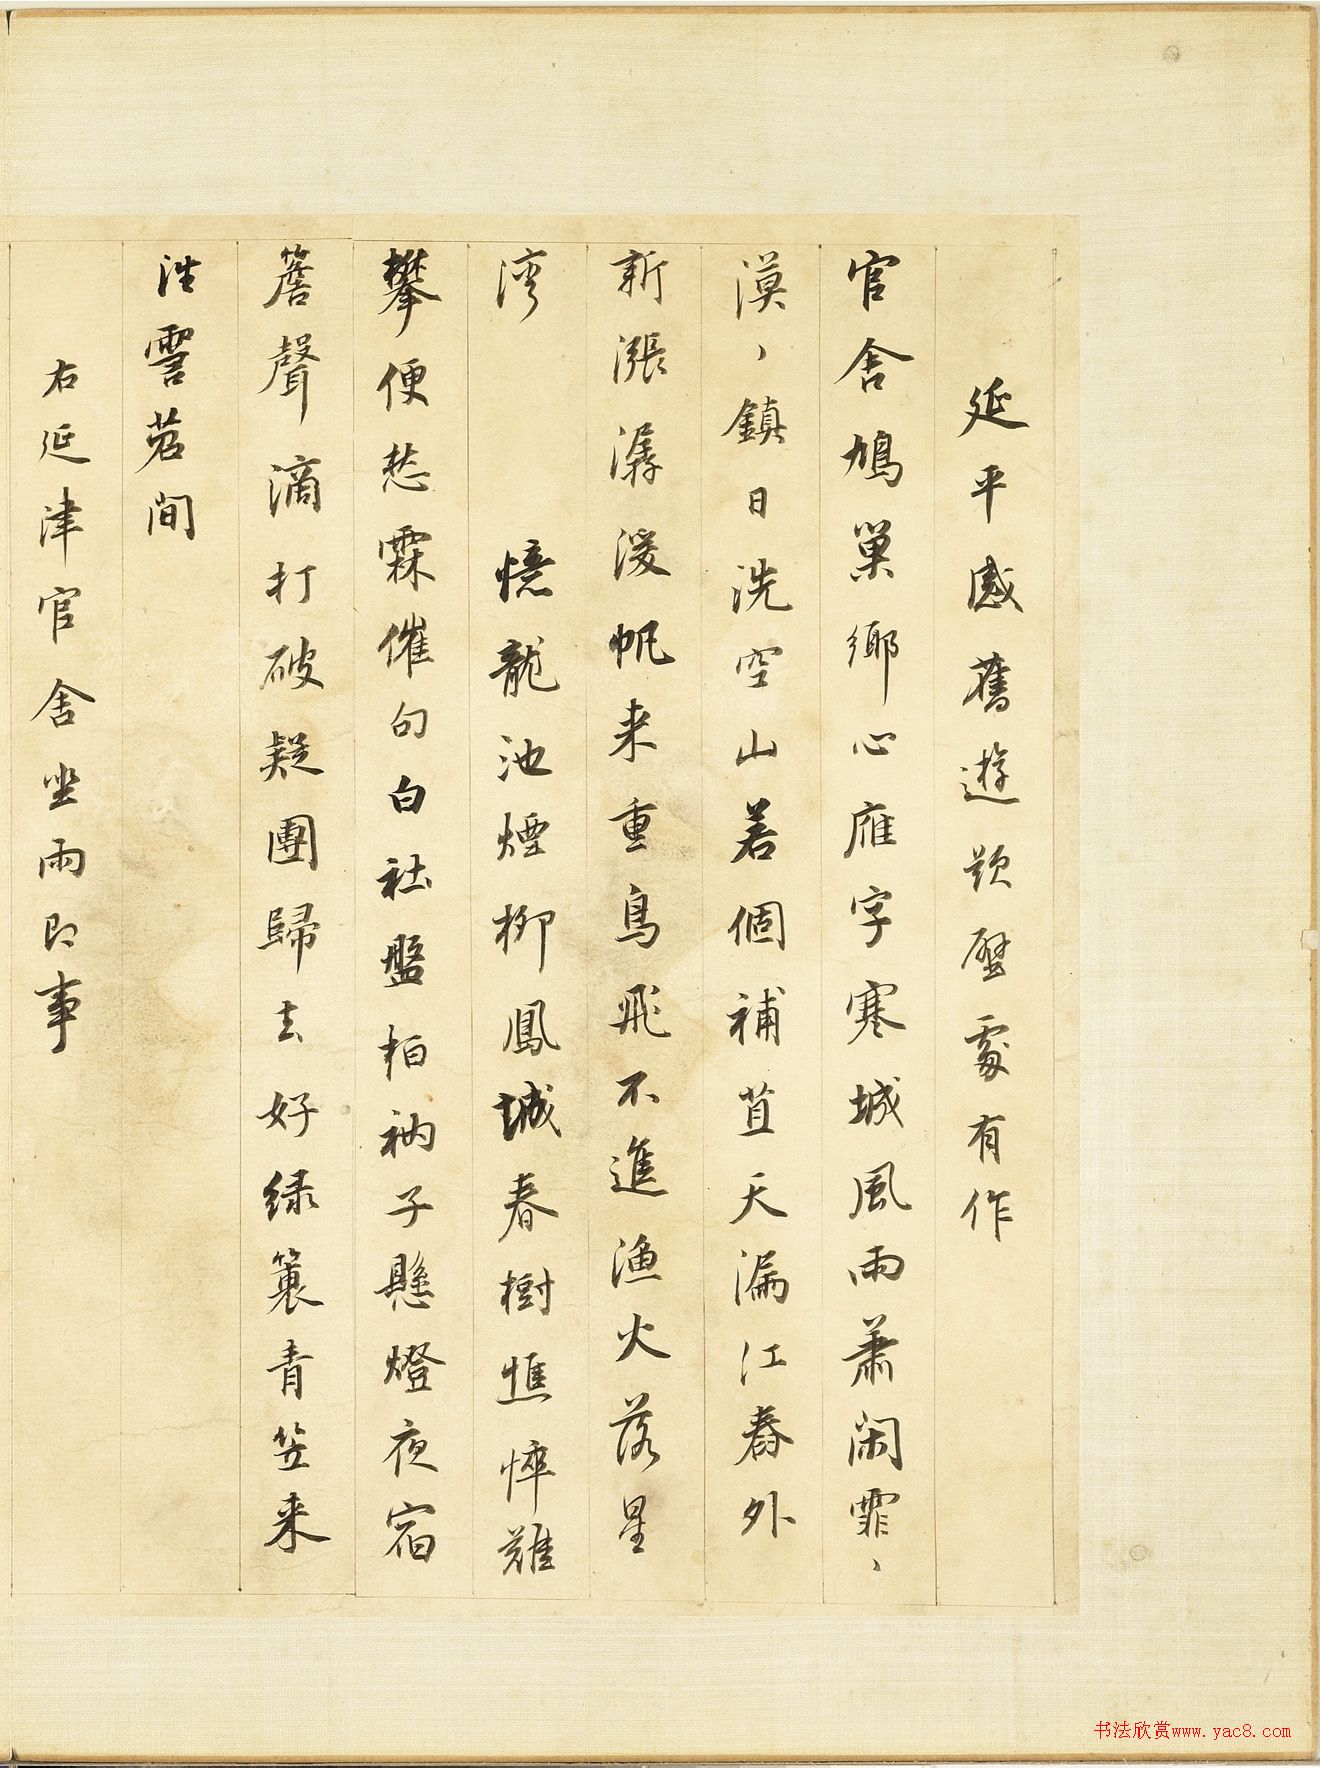 延平感舊遊題壁處有作
官舍鳩巢鄉心雁字寒城風雨蕭閑霏、
漠、鎮日洗空山若個補苴天漏江舂外
新漲潺湲帆来重鳥飛不進漁火落星
灣
憶龍池煙柳鳳城春樹憔悴難
攀便愁霖催句白社盤桓衲子懸燈夜宿
簷聲滴打破疑團歸去好绿簑青笠来
往霅苕間
右延津官舍坐雨即事
书法欣赏www.yac8.com